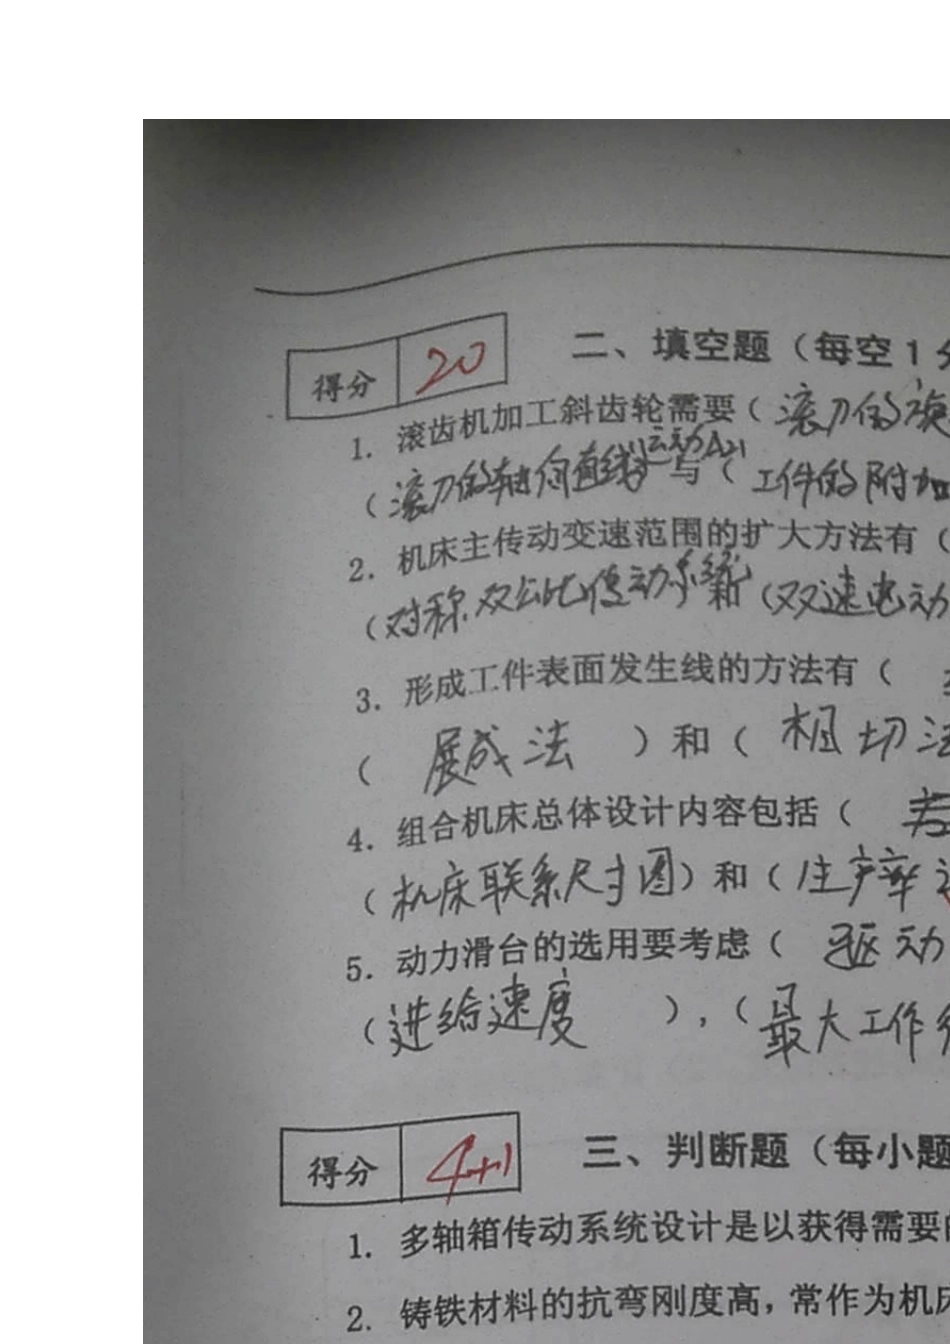 二、填空题（每空1分
得分 20
1. 滚齿机加工斜齿轮需要（滚刀的旋
（滚刀的轴向直线运动A21与（工件的附加
2. 机床主传动变速范围的扩大方法有（
（对称双公比传动系统（双速电动
3. 形成工件表面发生线的方法有（
（ 展成法 ）和（ 相切法
4. 组合机床总体设计内容包括（
（机床联系尺寸图）和（生产率
5. 动力滑台的选用要考虑（ 驱动
（进给速度 ），（最大工作
三、判断题（每小题
得分 4+1
1. 多轴箱传动系统设计是以获得需要的
2. 铸铁材料的抗弯刚度高，常作为机床